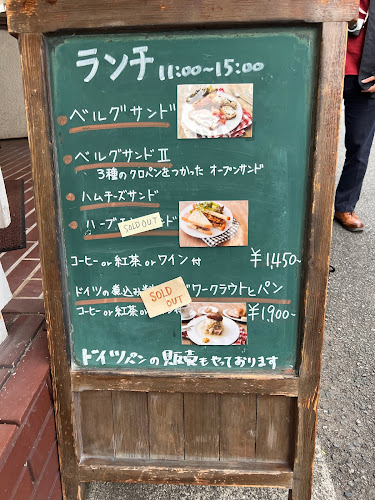 ランチ 11:00~15:00
ベルグサンド
ベルグサンドⅡ
3種のクロパンをつかった オープンサンド
ハムチーズサンド
ハーブ ンド
SOLD OUT
コーヒー or 紅茶 or ワイン 付 ¥1450-
ドイツの煮込み ワークラウトとパン
SOLD OUT
コーヒー or 紅茶 or ¥1900-
ドイツパンの販売もやっております